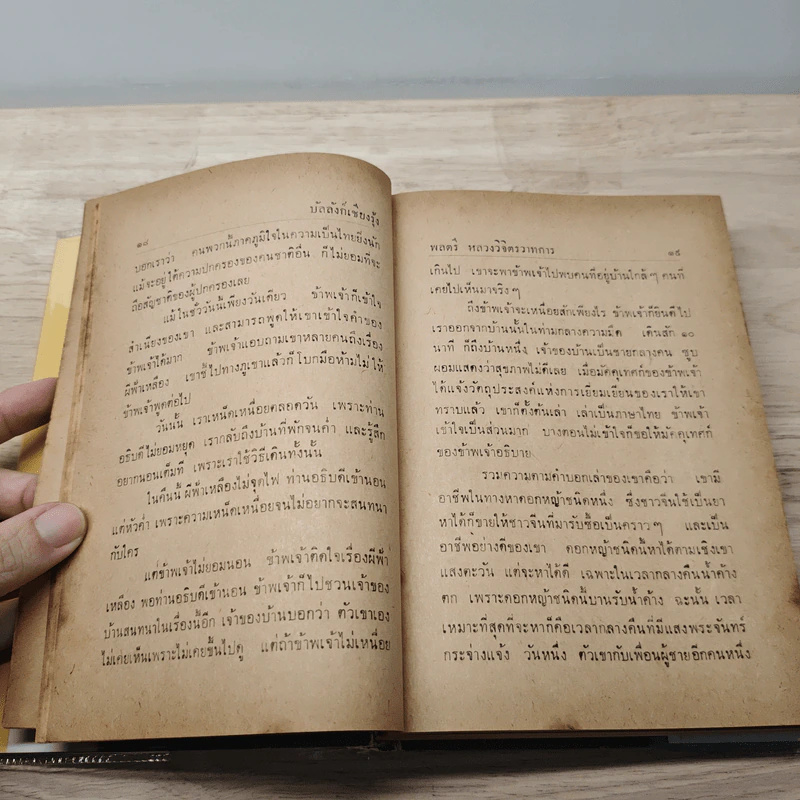 บัลลังก์เชียงรุ้ง
๑๘
บอกเราว่า คนพวกนี้ภาคภูมิใจในความเป็นไทยยิ่งนัก
แม้จะอยู่ใต้ความปกครองของคนชาติอื่น ก็ไม่ยอมที่จะ
ถือสัญชาติของผู้ปกครองเลย
แม้ในชั่ววันนี้เพียงวันเดียว ข้าพเจ้าก็เข้าใจ
สำเนียงของเขา และสามารถพูดให้เขาเข้าใจคำของ
ข้าพเจ้าได้มาก ข้าพเจ้าแอบถามเขาหลายคนถึงเรื่อง
ผีฟ้าเหลือง เขาชี้ไปทางภูเขาแล้วก็โบกมือห้ามไม่ให้
ข้าพเจ้าพูดต่อไป
วันนั้น เราเหน็ดเหนื่อยตลอดวัน เพราะท่าน
อธิบดีไม่ยอมหยุด เรากลับถึงบ้านที่พักจนค่ำ และรู้สึก
อยากนอนเต็มที่ เพราะเราใช้วิธีเดินทั้งนั้น
ในคืนนี้ ผีฟ้าเหลืองไม่จุดไฟ ท่านอธิบดีเข้านอน
แต่หัวค่ำ เพราะความเหน็ดเหนื่อยจนไม่อยากจะสนทนา
กับใคร
แต่ข้าพเจ้าไม่ยอมนอน ข้าพเจ้าติดใจเรื่องผีฟ้า
เหลือง พอท่านอธิบดีเข้านอน ข้าพเจ้าก็ไปชวนเจ้าของ
บ้านสนทนาในเรื่องนี้อีก เจ้าของบ้านบอกว่า ตัวเขาเอง
ไม่เคยเห็นเพราะไม่เคยขึ้นไปดู แต่ถ้าข้าพเจ้าไม่เหนื่อย
พลตรี หลวงวิจิตรวาทการ
๑๙
เกินไป เขาจะพาข้าพเจ้าไปพบคนที่อยู่บ้านใกล้ ๆ คนที่
เคยไปเห็นมาจริง ๆ
ถึงข้าพเจ้าจะเหนื่อยสักเพียงไร ข้าพเจ้าก็ยินดีไป
เราออกจากบ้านนั้นในท่ามกลางความมืด เดินสัก ๑๐
นาที ก็ถึงบ้านหนึ่ง เจ้าของบ้านเป็นชายกลางคน ซูบ
ผอมแสดงว่าสุขภาพไม่ดีเลย เมื่อมัคคุเทศก์ของข้าพเจ้า
ได้แจ้งวัตถุประสงค์แห่งการเยี่ยมเยียนของเราให้เขา
ทราบแล้ว เขาก็ตั้งต้นเล่า เล่าเป็นภาษาไทย ข้าพเจ้า
เข้าใจเป็นส่วนมาก บางตอนไม่เข้าใจก็ขอให้มัคคุเทศก์
ของข้าพเจ้าอธิบาย
รวมความตามคำบอกเล่าของเขาคือว่า เขามี
อาชีพในทางหาดอกหญ้าชนิดหนึ่ง ซึ่งชาวจีนใช้เป็นยา
หาได้ก็ขายให้ชาวจีนที่มารับซื้อเป็นคราว ๆ และเป็น
อาชีพอย่างดีของเขา ดอกหญ้าชนิดนี้หาได้ตามเชิงเขา
แสงตะวัน แต่จะหาได้ดี เฉพาะในเวลากลางคืนน้ำค้าง
ตก เพราะดอกหญ้าชนิดนี้บานรับน้ำค้าง ฉะนั้น เวลา
เหมาะที่สุดที่จะหาก็คือเวลากลางคืนที่มีแสงพระจันทร์
กระจ่างแจ้ง วันหนึ่ง ตัวเขากับเพื่อนผู้ชายอีกคนหนึ่ง